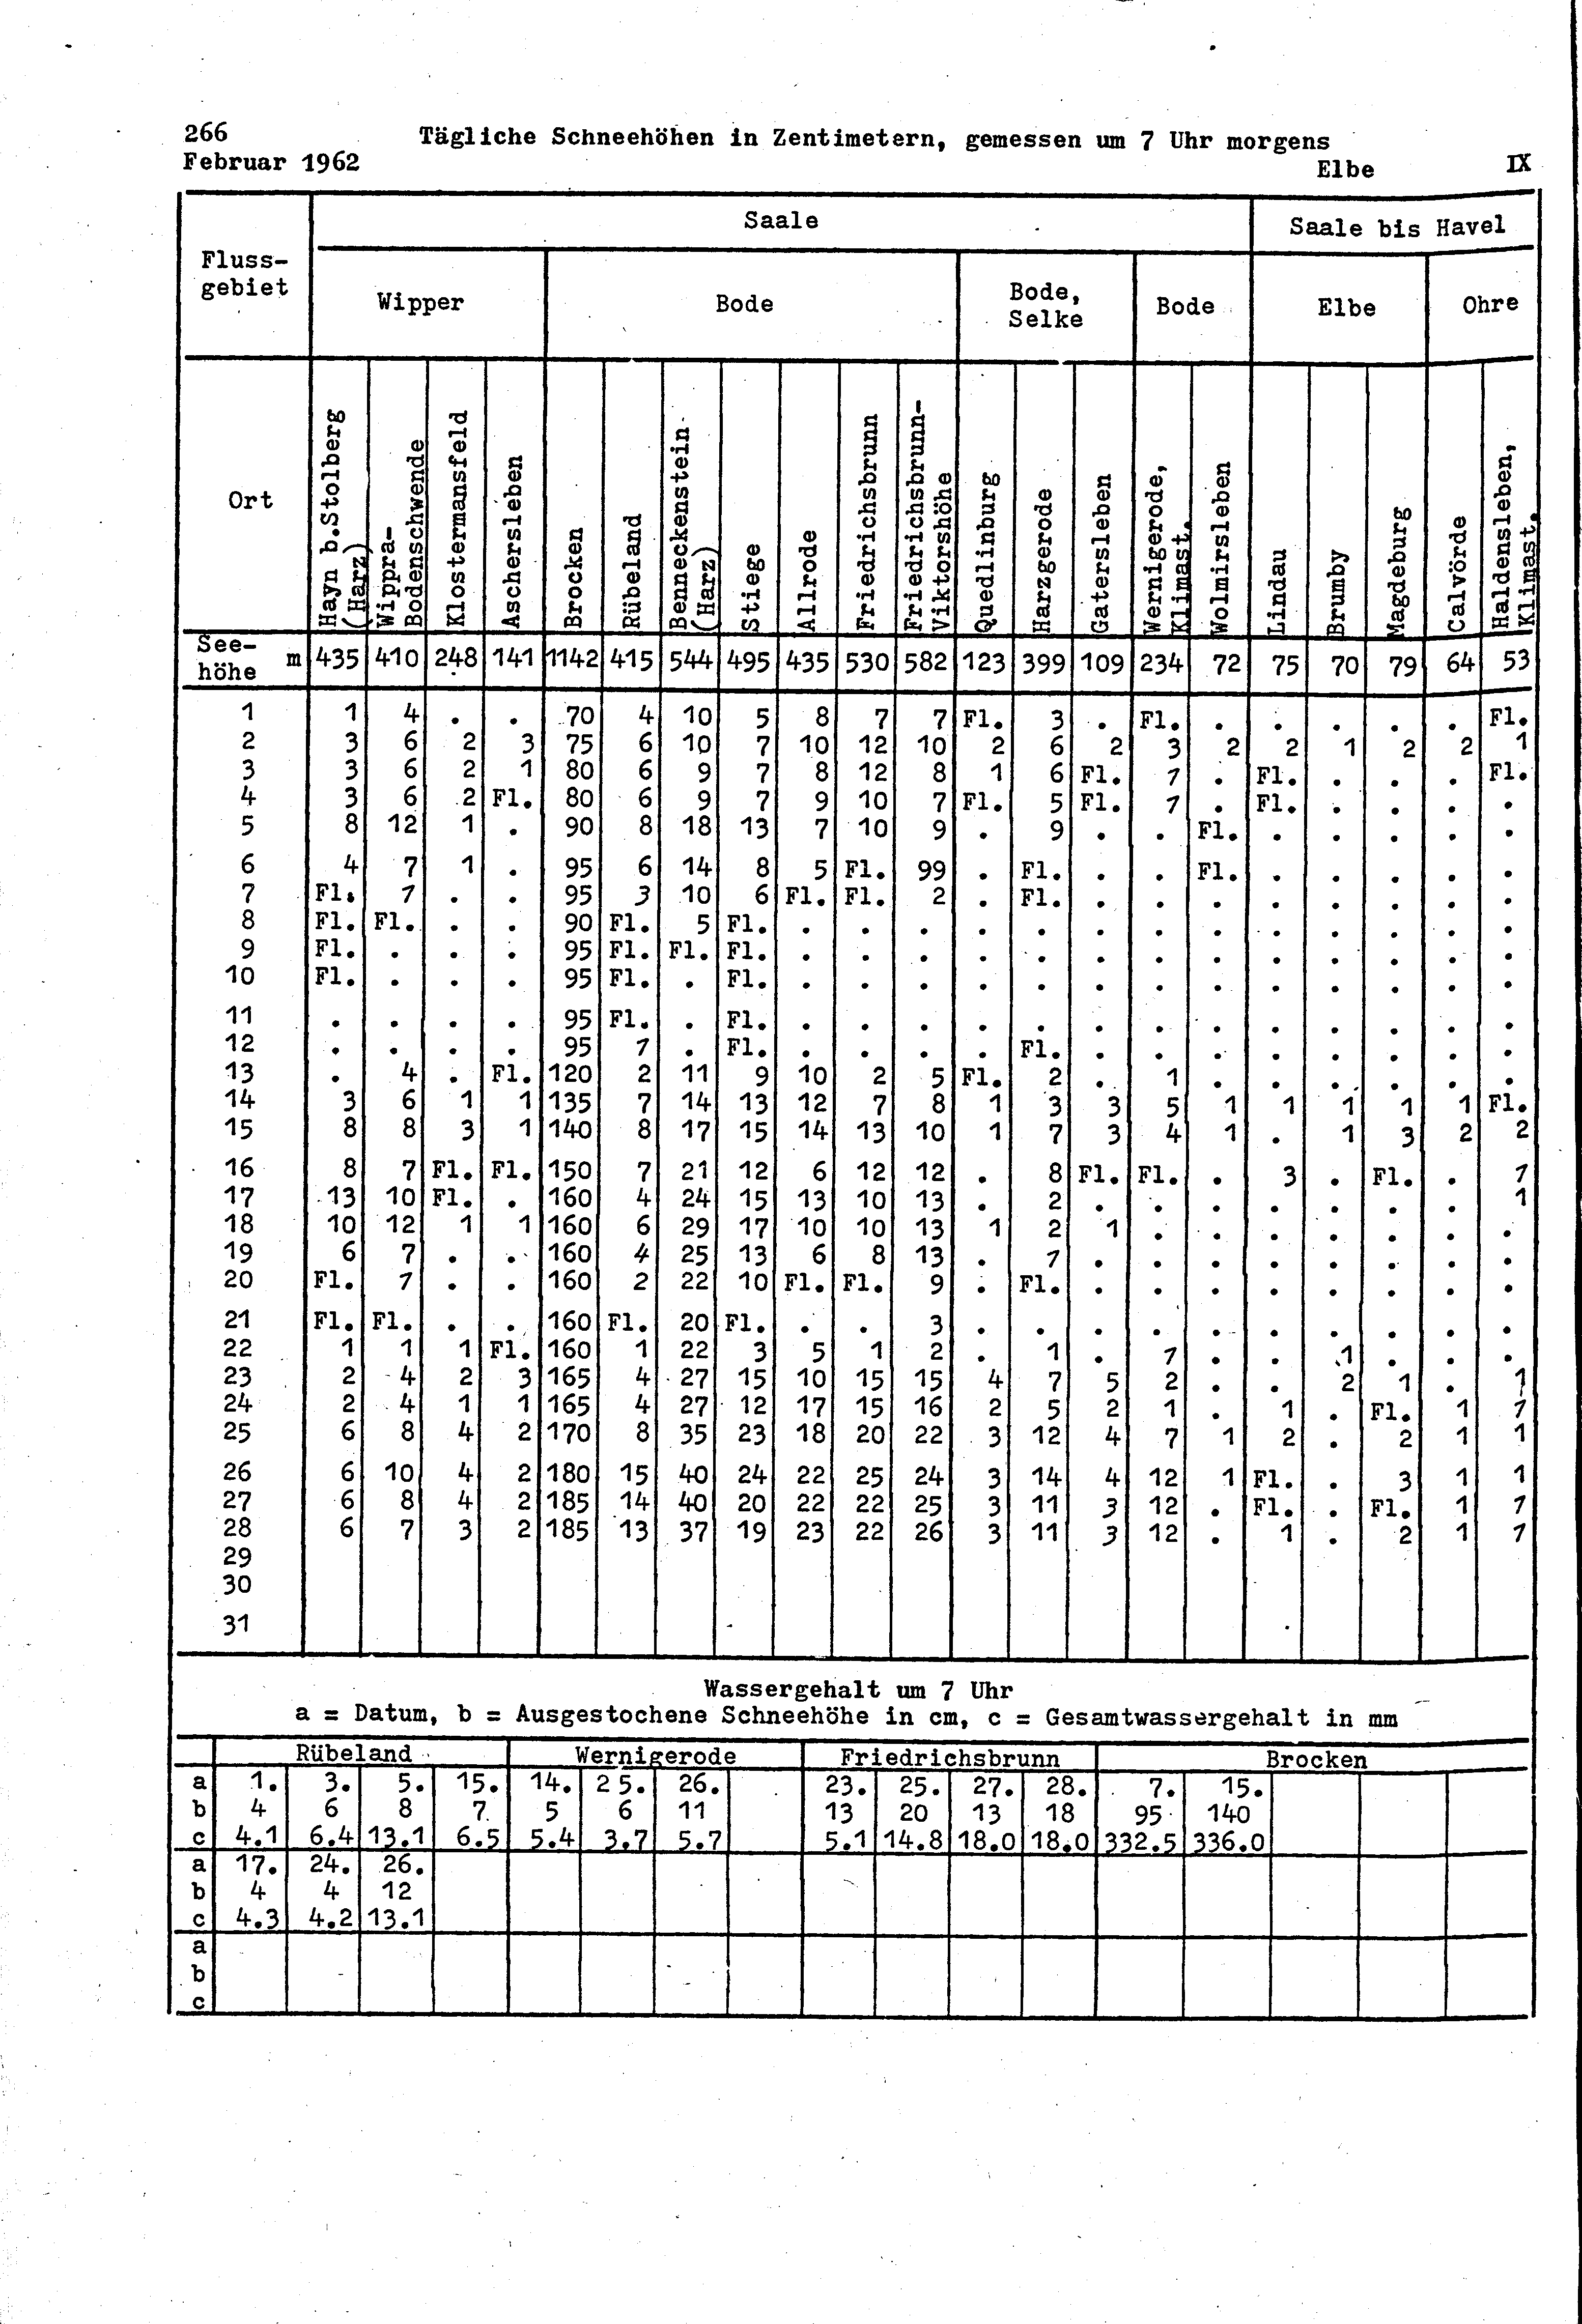 266 Tägliche Schneehöhen in Zentimetern, gemessen um 7 Uhr morgens
Februar 1962 Elbe IX
Fluss-
gebiet
Saale Saale bis Havel
Wipper Bode Bode, Selke Bode Elbe Ohre
Ort Hayn b.Stolberg (Harz) Wippra-Bodenschwende Klostermansfeld Aschersleben Brocken Rübeland Benneckenstein (Harz) Stiege Allrode Friedrichsbrunn Friedrichsbrunn-Viktorshöhe Quedlinburg Harzgerode Gatersleben Wernigerode, Klimast. Wolmirsleben Lindau Brumby Magdeburg Calvörde Haldensleben, Klimast.
See-
höhe m 435 410 248 141 1142 415 544 495 435 530 582 123 399 109 234 72 75 70 79 64 53
1 1 4 . . 70 4 10 5 8 7 7 Fl. 3 . Fl. . . . . . Fl.
2 3 6 2 3 75 6 10 7 10 12 10 2 6 2 3 2 2 1 2 2 1
3 3 6 2 1 80 6 9 7 8 12 8 1 6 Fl. 1 . Fl. . . . Fl.
4 3 6 2 Fl. 80 6 9 7 9 10 7 Fl. 5 Fl. 1 . Fl. . . . .
5 8 12 1 . 90 8 18 13 7 10 9 . 9 . . Fl. . . . . .
6 4 7 1 . 95 6 14 8 5 Fl. 99 . Fl. . . Fl. . . . . .
7 Fl. 1 . . 95 3 10 6 Fl. Fl. 2 . Fl. . . . . . . . .
8 Fl. Fl. . . 90 Fl. 5 Fl. . . . . . . . . . . . . .
9 Fl. . . . 95 Fl. Fl. Fl. . . . . . . . . . . . . .
10 Fl. . . . 95 Fl. . Fl. . . . . . . . . . . . . .
11 . . . . 95 Fl. . Fl. . . . . . . . . . . . . .
12 . . . . 95 1 . Fl. . . . . Fl. . . . . . . . .
13 . 4 . Fl. 120 2 11 9 10 2 5 Fl. 2 . 1 . . . . . .
14 3 6 1 1 135 7 14 13 12 7 8 1 3 3 5 1 1 1 1 1 Fl.
15 8 8 3 1 140 8 17 15 14 13 10 1 7 3 4 1 . 1 3 2 2
16 8 7 Fl. Fl. 150 7 21 12 6 12 12 . 8 Fl. Fl. . 3 . Fl. . 1
17 13 10 Fl. . 160 4 24 15 13 10 13 . 2 . . . . . . . 1
18 10 12 1 1 160 6 29 17 10 10 13 1 2 1 . . . . . . .
19 6 7 . . 160 4 25 13 6 8 13 . 1 . . . . . . . .
20 Fl. 1 . . 160 2 22 10 Fl. Fl. 9 . Fl. . . . . . . . .
21 Fl. Fl. . . 160 Fl. 20 Fl. . . 3 . . . . . . . . . .
22 1 1 1 Fl. 160 1 22 3 5 1 2 . 1 . 1 . . 1 . . .
23 2 4 2 3 165 4 27 15 10 15 15 4 7 5 2 . . 2 1 . 1
24 2 4 1 1 165 4 27 12 17 15 16 2 5 2 1 . 1 . Fl. 1 1
25 6 8 4 2 170 8 35 23 18 20 22 3 12 4 7 1 2 . 2 1 1
26 6 10 4 2 180 15 40 24 22 25 24 3 14 4 12 1 Fl. . 3 1 1
27 6 8 4 2 185 14 40 20 22 22 25 3 11 3 12 . Fl. . Fl. 1 1
28 6 7 3 2 185 13 37 19 23 22 26 3 11 3 12 . 1 . 2 1 1
29
30
31
Wassergehalt um 7 Uhr
a = Datum, b = Ausgestochene Schneehöhe in cm, c = Gesamtwassergehalt in mm
Rübeland Wernigerode Friedrichsbrunn Brocken
a 1. 3. 5. 15. 14. 25. 26. 23. 25. 27. 28. 7. 15.
b 4 6 8 7 5 6 11 13 20 13 18 95 140
c 4.1 6.4 13.1 6.5 5.4 3.7 5.7 5.1 14.8 18.0 18.0 332.5 336.0
a 17. 24. 26.
b 4 4 12
c 4.3 4.2 13.1
a
b
c